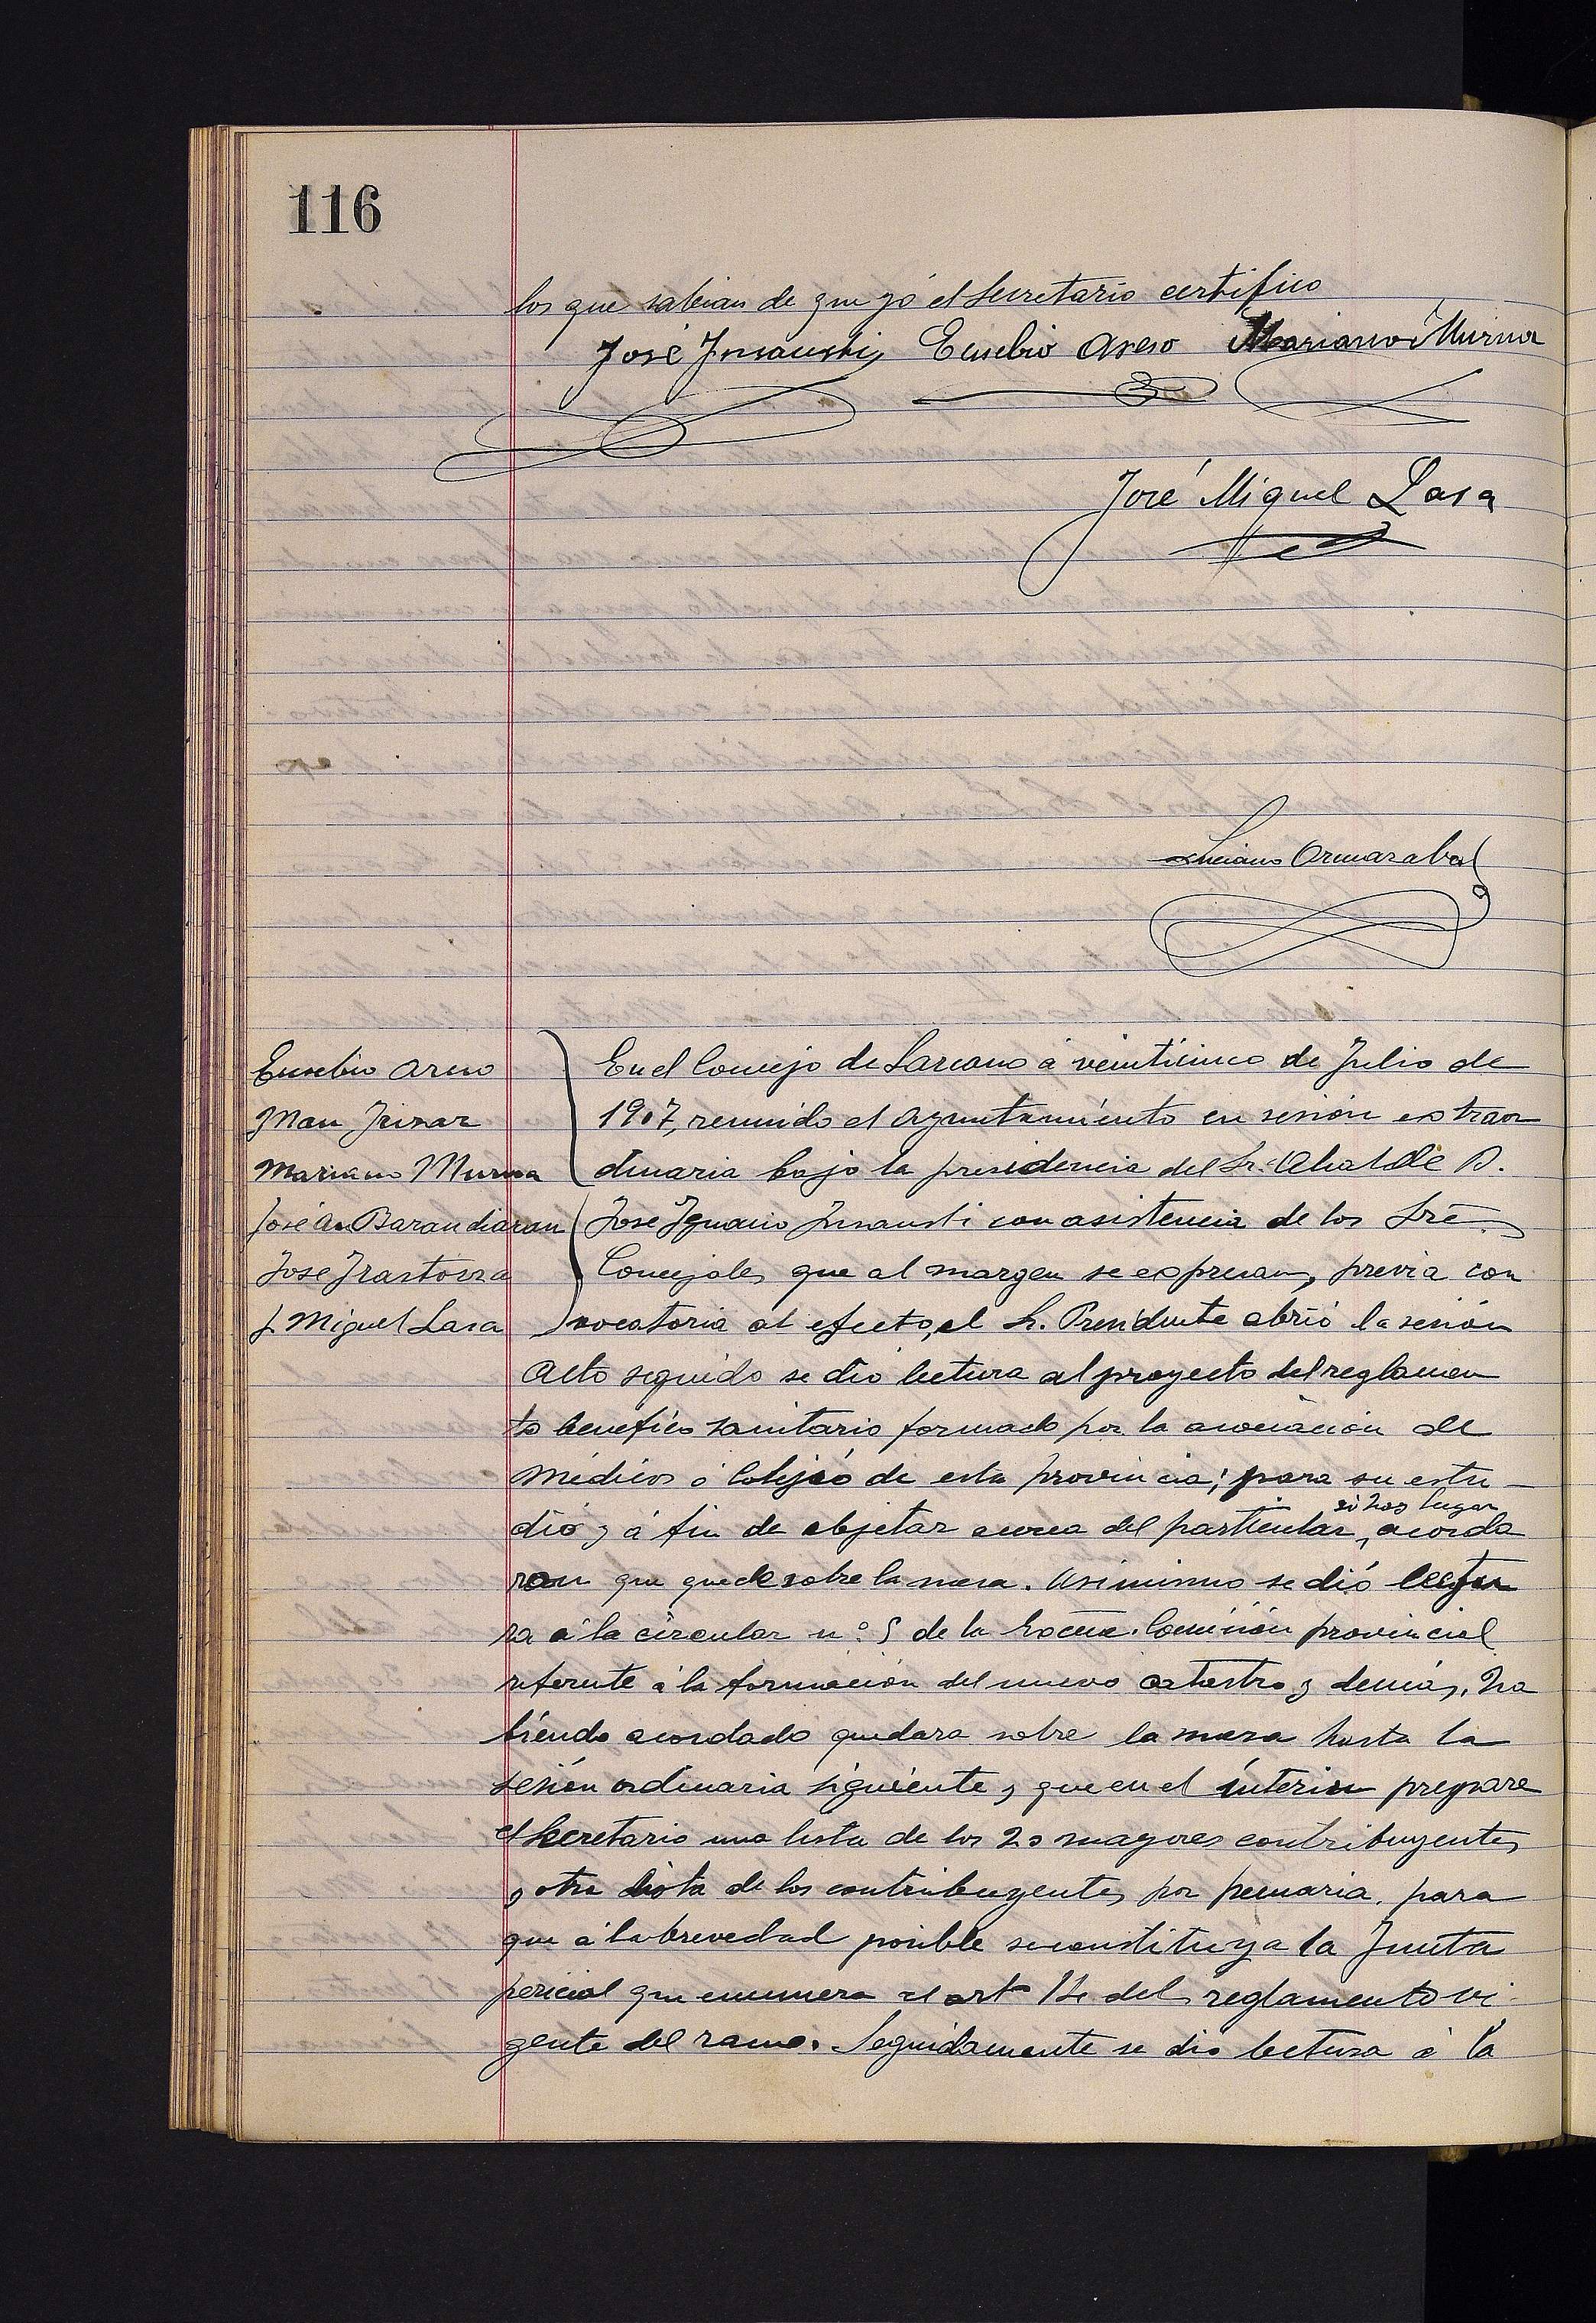 116
los que sabian de que yó el Secretario certifico
José Insausti Eusebio Aseso Mariano Murua
José Miguel Lasa
Luciano Ormazabal
Eusebio Aseso
Man Irizar
Mariano Murua
José An Barandiaran
Jose Irastorza
J. Miguel Lasa
En el Concejo de Lazcano á veinticinco de Julio de
1907, reunido el Ayuntamiento en sesión extraor
dinaria bajo la presidencia del Sr. Alcalde D.
Jose Ignacio Insausti con asistencia de los Sres
Concejales que al margen se expresan, previa con
vocatoria al efecto, el Sr. Presidente abrió la sesión
Acto seguido se dio lectura al proyecto del reglamen
to benefico sanitario formado por la asociación de
Médicos ó Colejio de esta provincia; para su estu-
dio y á fin de objetar acerca del particular, si hay lugar acorda
ron que quede sobre la mesa. Asimismo se dió lectu
ra á la circular nº 5 de la Excma. Comisión provincial
referente á la formación del nuevo catastro y demás, ha
biendo acordado quedara sobre la mesa hasta la
sesión ordinaria siguiente y que en el interin prepare
el Secretario una lista de los 20 mayores contribuyentes
y otra lista de los contribuyentes por pecuaria, para
que á la brevedad posible se constituya la Junta
pericial que enumera el art del reglamento vi
gente del ramo. Seguidamente se dio lectura á la